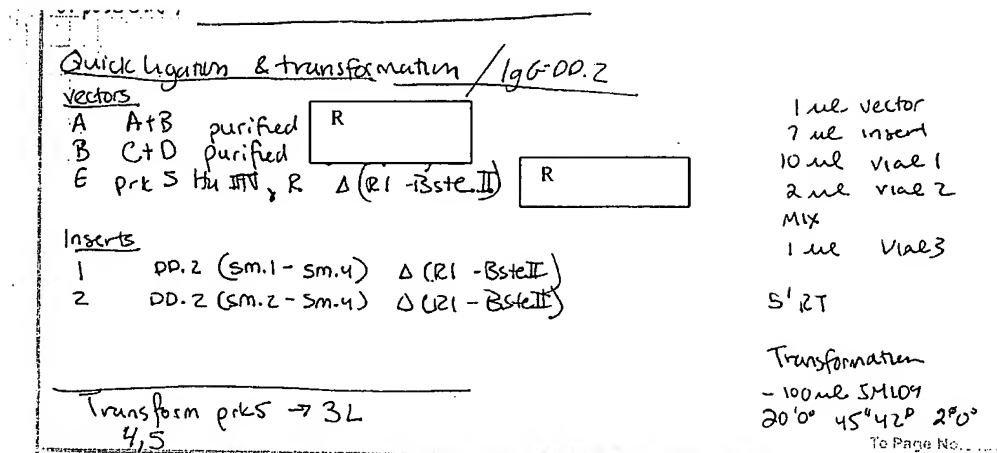 Quick ligation & transformation / IgG-DD.2
vectors
A A+B purified R
B C+D purified
E prk 5 Hu R Δ(R1 - Bste II) R
Inserts
1 DD.2 (sm.1 - sm.4) Δ (R1 - BsteII)
2 DD.2 (sm.2 - sm.4) Δ (R1 - BsteII)
Transform prk5 → 3L
4,5
1 ul vector
7 ul insert
10 ul vial 1
2 ul vial 2
MIX
1 ul Vial 3
5' RT
Transformation
- 100 ul
20'0° 45"42° 2'0°
To Page No.